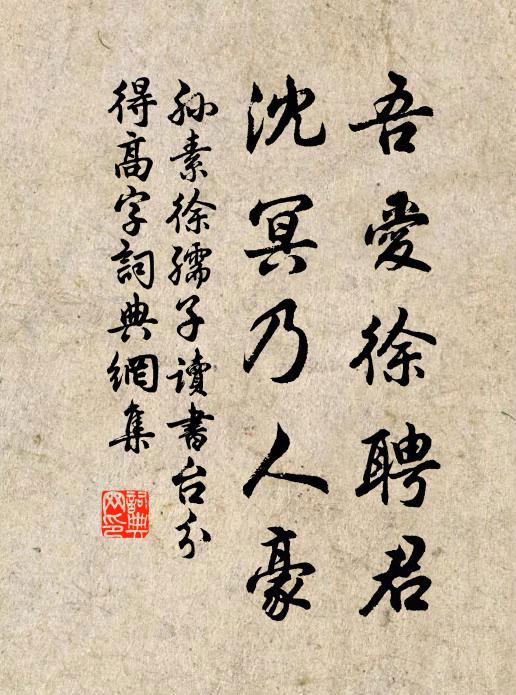 吾愛徐聘君
沈冥乃人豪
孙素徐孺子讀書台分
得高字詞典網集
詞典
网印